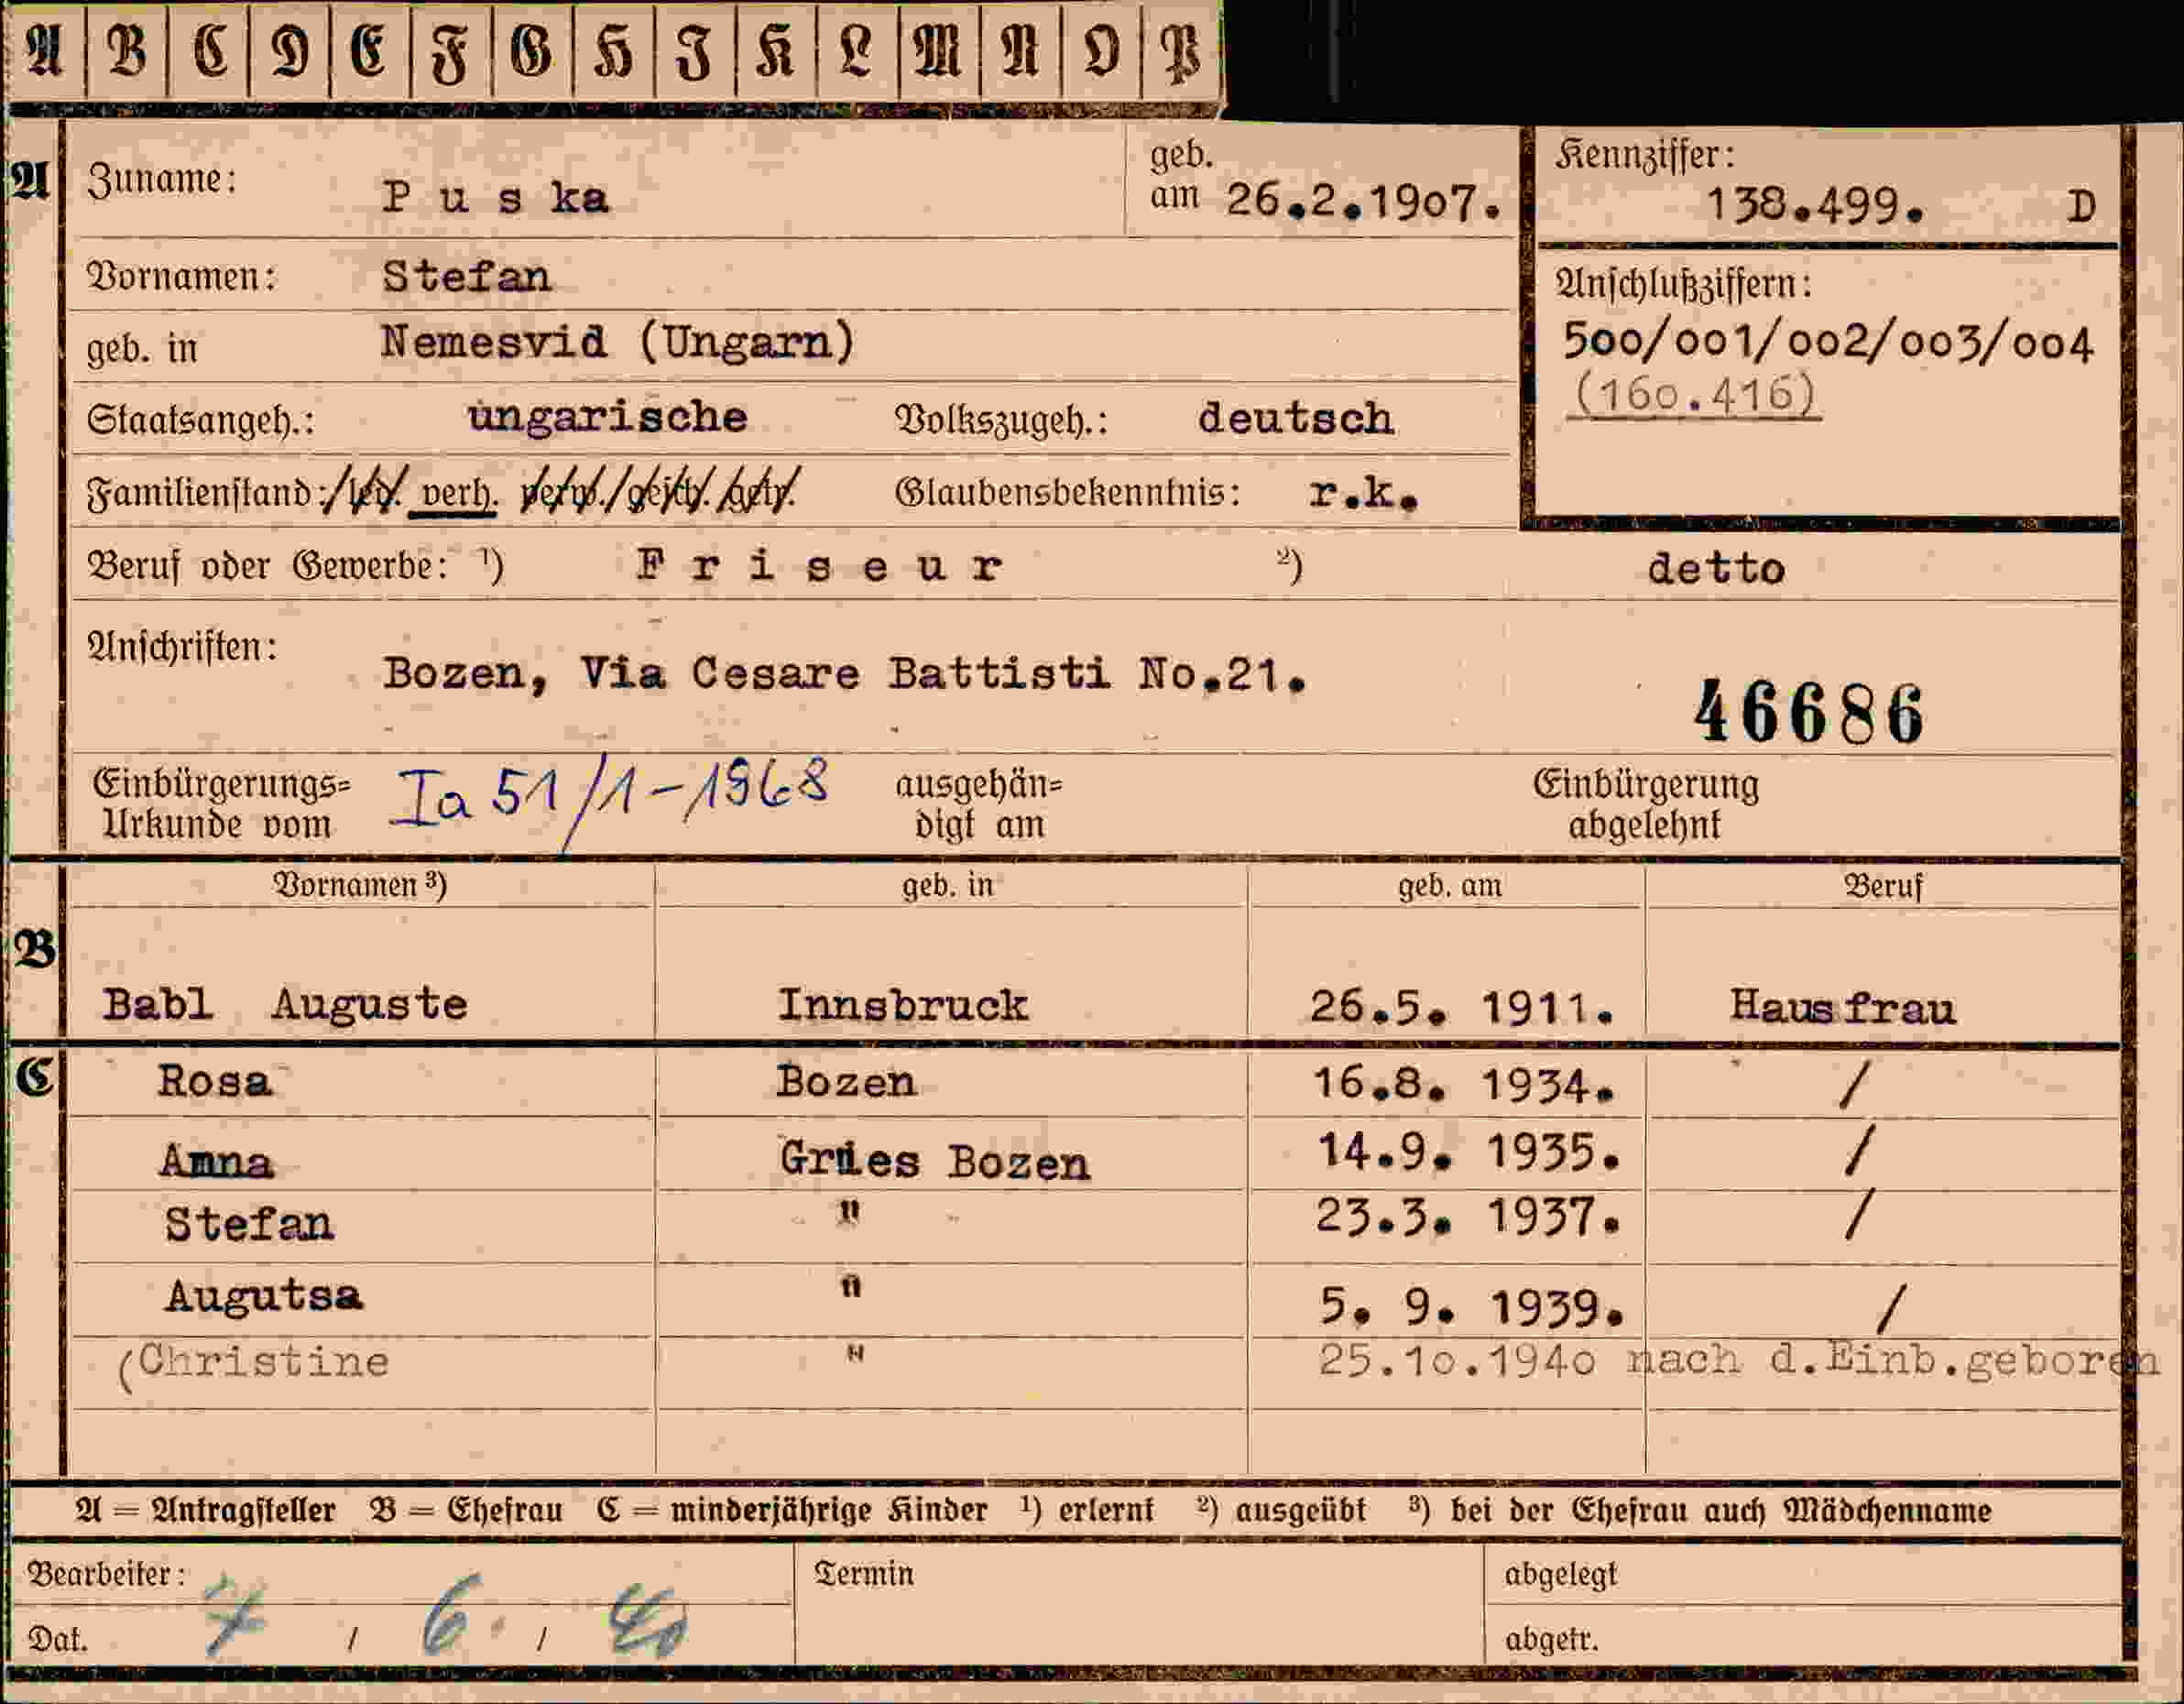 A B C D E F G H I K L M N O P
A Zuname: Puska geb. am 26.2.1907. Kennziffer: 138.499. D
Vornamen: Stefan Anschlußziffern:
geb. in Nemesvid (Ungarn) 500/001/002/003/004
(160.416)
Staatsangeh.: ungarische Volkszugeh.: deutsch
Familienstand: led. verh. verw. gesch. getr. Glaubensbekenntnis: r.k.
Beruf oder Gewerbe: ¹) Friseur ²) detto
Anschriften: Bozen, Via Cesare Battisti No.21.
46686
Einbürgerungs=
Urkunde vom Ia 51/1-1968 ausgehän=
digt am Einbürgerung
abgelehnt
Vornamen ³) geb. in geb. am Beruf
B
Babl Auguste Innsbruck 26.5. 1911. Hausfrau
C Rosa Bozen 16.8. 1934. /
Anna Gries Bozen 14.9. 1935. /
Stefan " 23.3. 1937. /
Augutsa " 5. 9. 1939. /
(Christine " 25.10.1940 nach d.Einb.geboren
A = Antragsteller B = Ehefrau C = minderjährige Kinder ¹) erlernt ²) ausgeübt ³) bei der Ehefrau auch Mädchenname
Bearbeiter: Termin abgelegt
Dat. 7 / 6. / 40 abgetr.